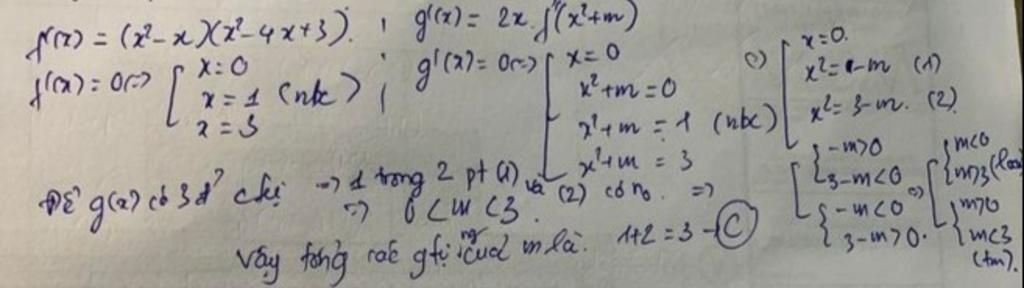 f'(x) = (x²-x)(x²-4x+3). ; g'(x) = 2x. f'(x²+m)
f'(x) = 0 <=> [ x=0
x = 1 (nbc)
x = 3
; g'(x) = 0 <=> [ x = 0
x²+m = 0
x²+m = 1 (nbc)
x²+m = 3
<=> [ x=0.
x² = -m (1)
x² = 3-m. (2)
Để g(x) có 3 đ' chị => 1 trong 2 pt (1) và (2) có no. =>
[ { -m>0
3-m<0
{ -m<0
3-m>0.
<=> [ { m<0
m>3 (loại)
{ m>0
m<3
(tm).
=> 0<m<3.
Vậy tổng các gtị ng của m là: 1+2 = 3 → C